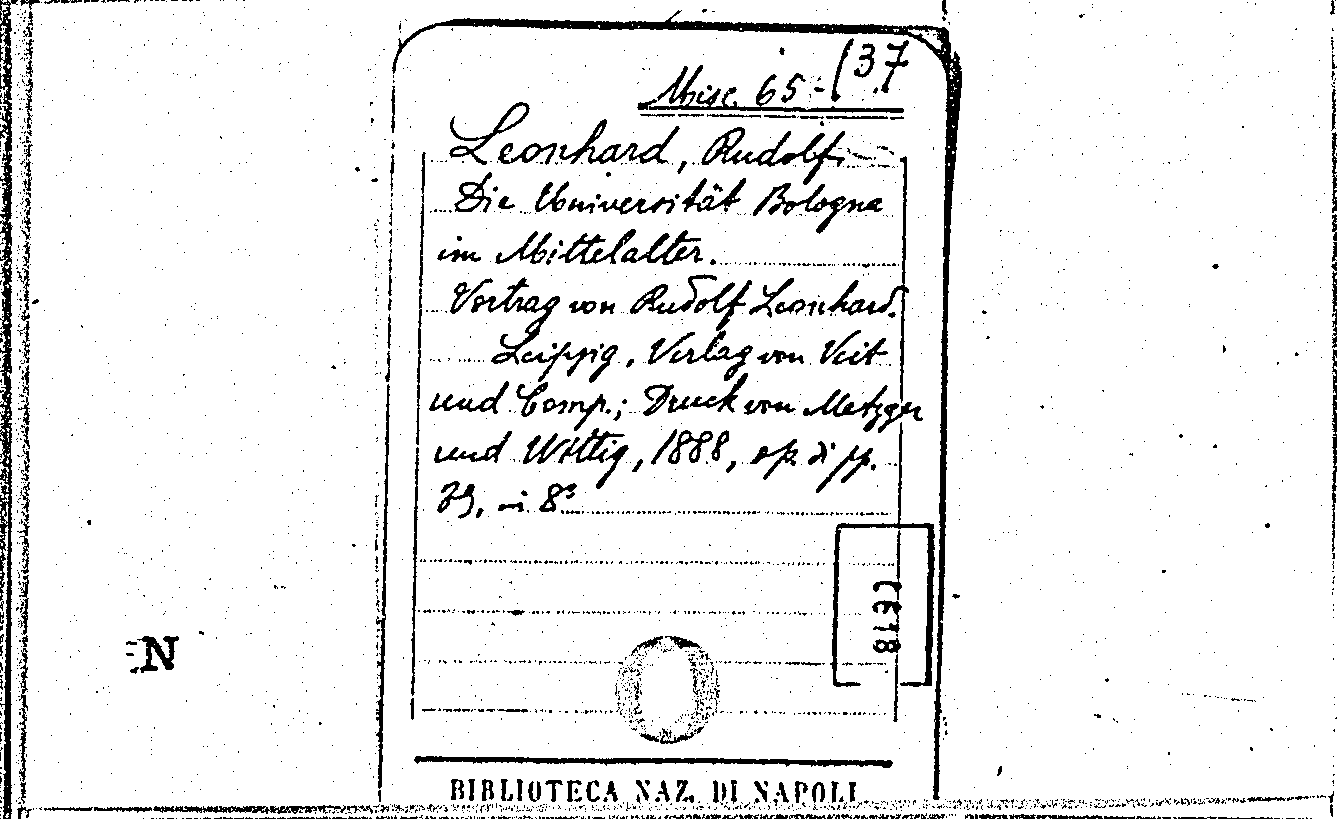 Misc. 65-(37
Leonhard, Rudolf.
Die Universität Bologna
im Mittelalter.
Vortrag von Rudolf Leonhard.
Leipzig, Verlag von Veit
und Comp.; Druck von Metzger
und Wittig, 1888, op. di pp.
in 8º
CE18
N
BIBLIOTECA NAZ. DI NAPOLI